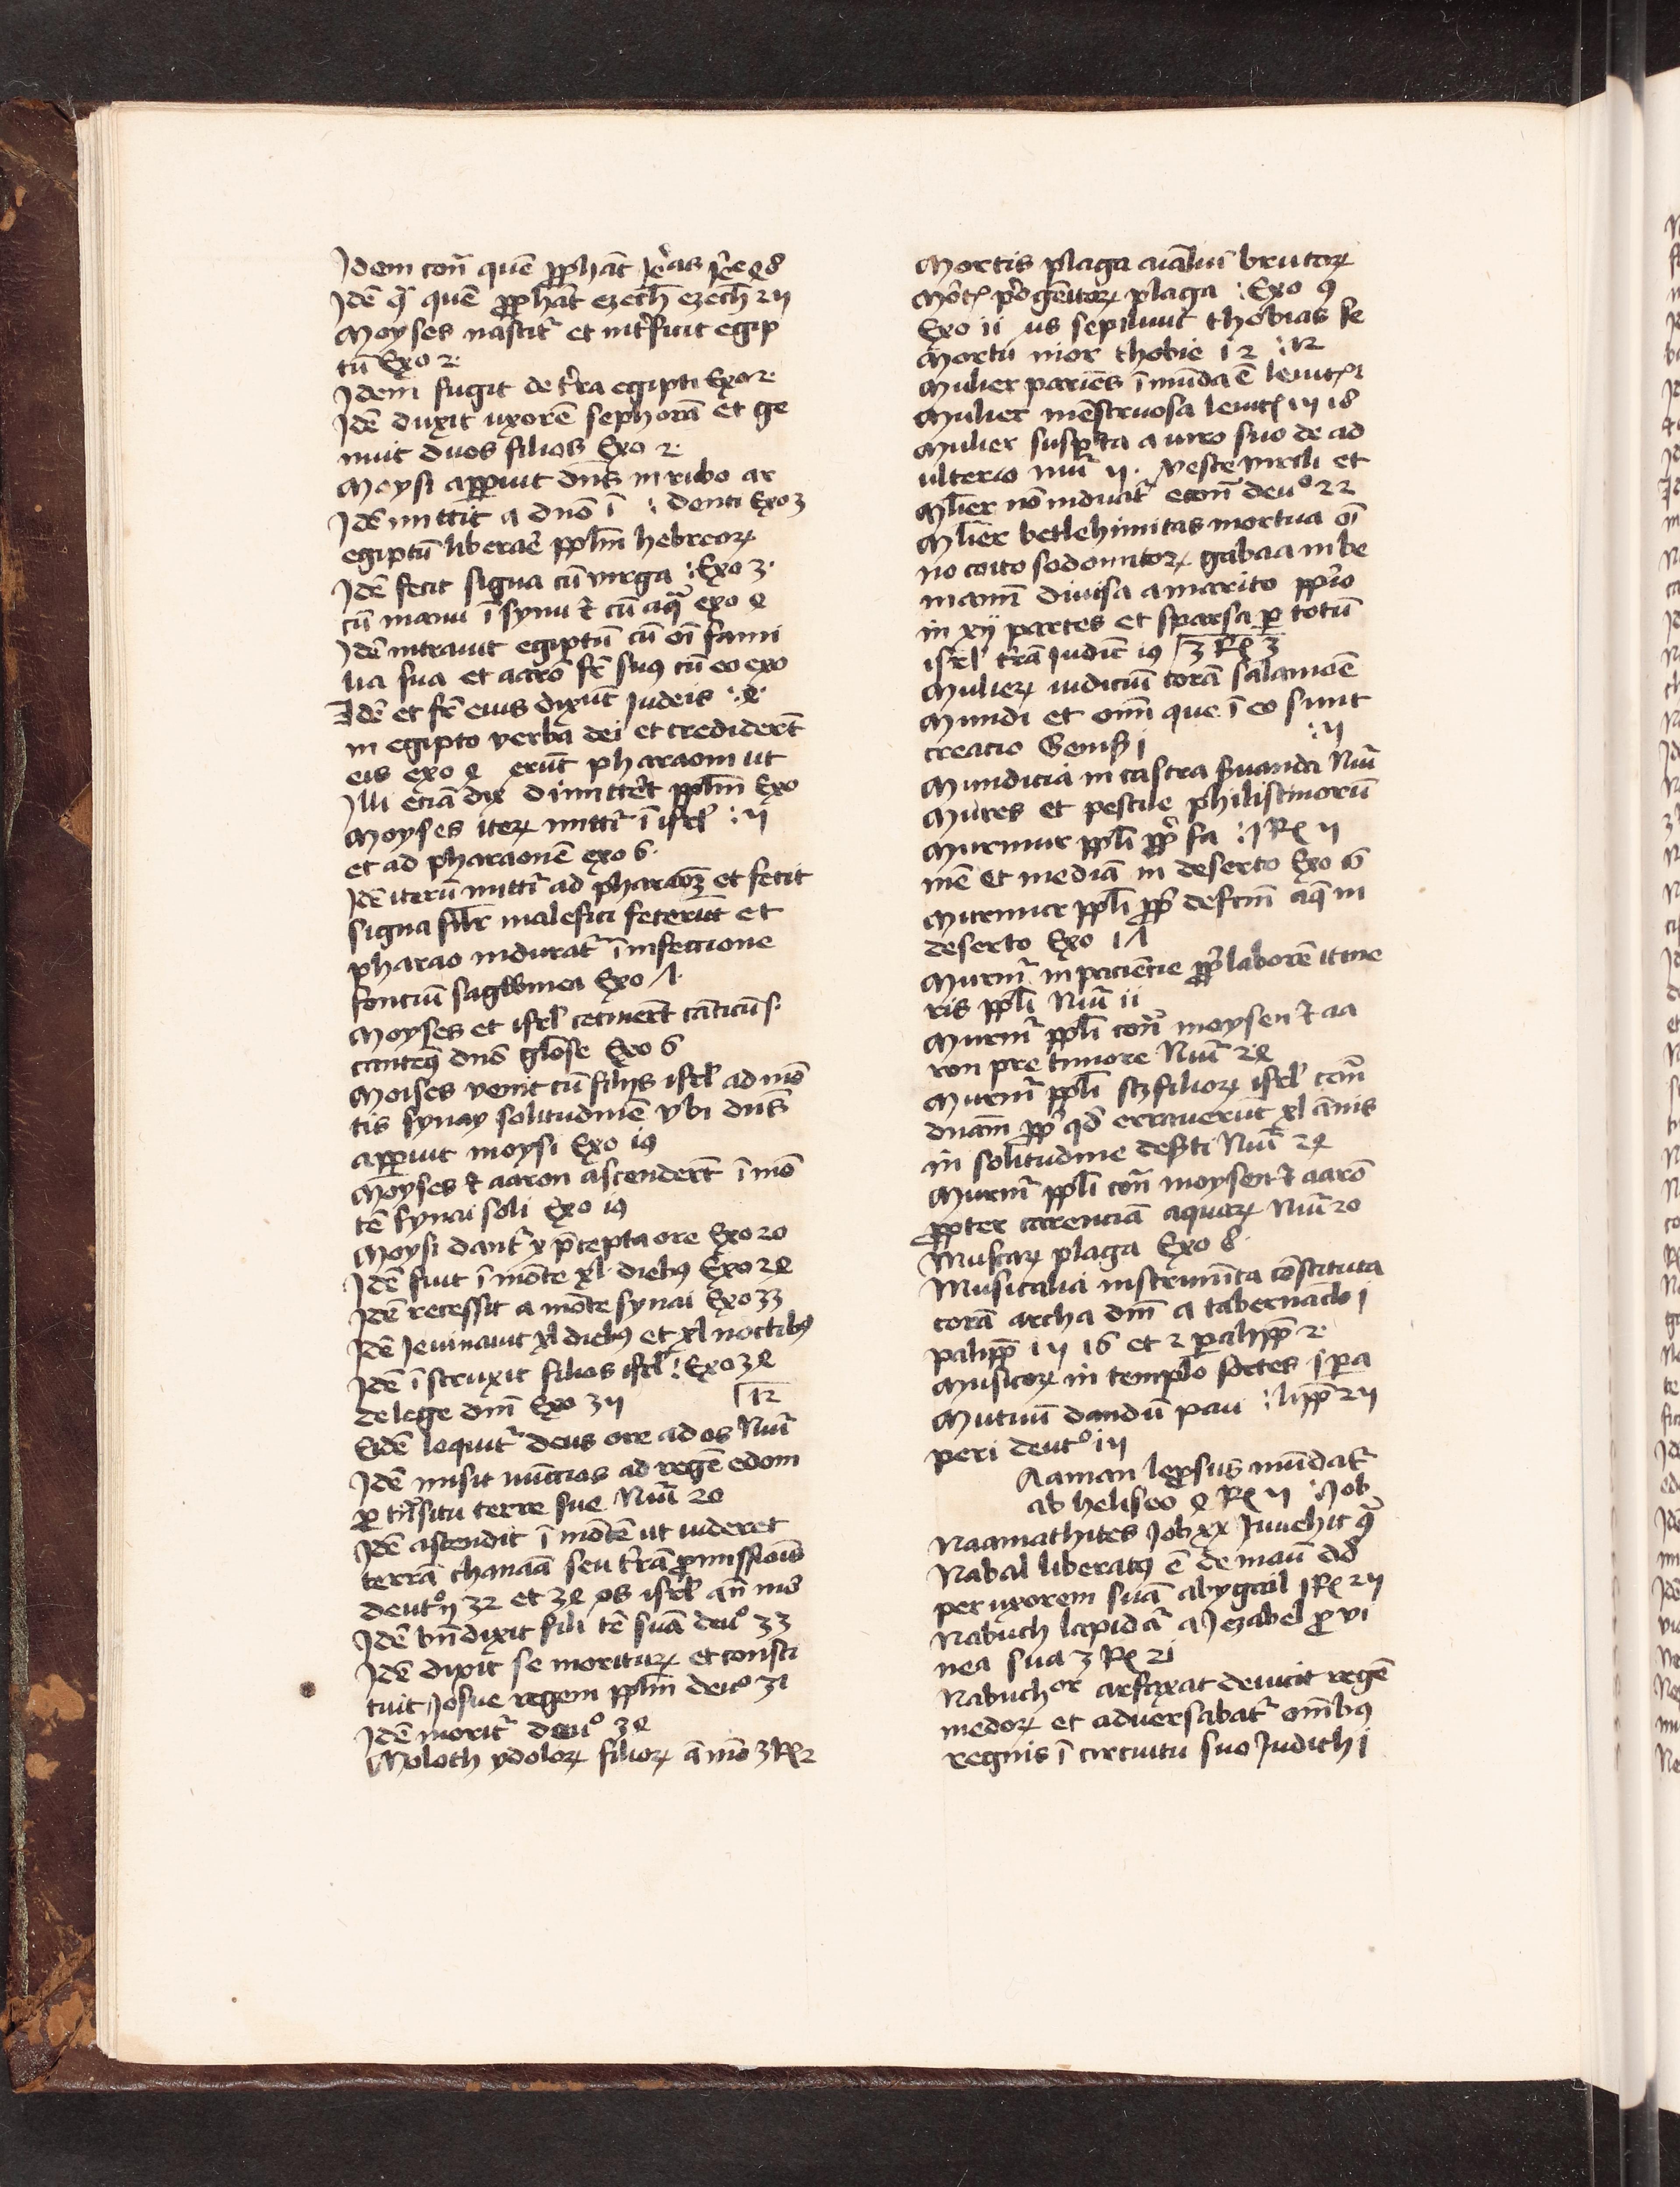 Idem con̄ quē ꝓphāt Ieͤas Ieͤe ꝝ8
Idē qͣ quē ꝓphāt ezech̄ ezech̄ 2ij
Moyses nascit᷑ et int᷑ficit egip
tū Exo 2·
Idem fugit de t᷑ra egipti Exo 2·
Idē duxit uxorē sephorā et ge
nuit duos filios Exo 2·
Moysi apꝑuit dn̄s in rubo ar
Idē mittit᷑ a dn̄o ī ⁖ denti Exo 3
egiptū liberāe ppl̄m hebreoꝝ
Idē fecit signa cū virga ⁖ Exo 3·
cū manu ī synu ⁊ cū aqͣ exo 4
Idē intravit egiptū cū oī fami
lia sua et aarō fr̄ suꝰ cū eo exo
Idē et fr̄ eius dixūt Iudeis ⁖ 4·
in egipto verba dei et credider̄t
eis exo 4 erūt pharaoni ut
Illi etiā dix dimitter̄t ppl̄m Exo
Moyses iteꝝ mittit᷑ ī isrl̄ ⁖ ij
et ad pharaonē exo 6·
Idē iterū mittit᷑ ad pharaoꝫ et fecit
signa silr̄ malefici fecerūt et
pharao indurat᷑ ī infectione
fontiū sagwinea Exo 7·
Moyses et isrl̄ cecinert̄ cāticū s·
cantemꝰ dn̄o gl̄ose Exo 6
Moises venit cū filijs isrl̄ ad mō
tis synay solitudinē vbi dn̄s
apꝑuit moysi Exo 19
Moyses ⁊ aaron ascendert̄ ī mō
tē synai soli Exo 19
Moysi dant᷑ x p̄cepta ore Exo 20
Idē fuit ī mōte xl diebꝰ Exo 24
Idē recessit a mōte synai Exo 33
Idē Ieiunavit xl diebꝰ et xl noctibꝰ
Idē īstruxit filios isrl̄ ⁖ Exo 34
de lege dn̄i Exo 3ij 12
Eidē loquit᷑ deus ore ad os Nūi
Idē misit nūctios ad regē edom
ꝑ trāsitu terre sue Nūi 20
Idē ascendit ī mōtē ut videret
terrā chanaā seu t᷑rā ꝓmissiōis
deutᵒ ij 32 et 34 os isrl̄ an̄ mō
Idē bn̄dixit fili tē suā deuᵒ 33
Idē dixit se morituꝝ et consti
tuit Josue regem ppl̄m deuᵒ 31
Idē morit᷑ deuᵒ 34
Moloth ydoloꝝ filioꝝ āmō 3 Rꝫ 2
Mortis plaga aīaliū brutoꝝ
Mōtꝭ p᷑ogēitoꝝ plaga ⁖ Exo 9
Exo ii us sepiliuit thobias se
Mortu uior thobie 12 ⁖ 12
Mulier pariēs īmūda ē leuitꝭ
Mulier mēstruosa leuitꝭ 18
Mulier suspecta a uiro suo de ad
ulterio nūi ij· veste virili et
Ml̄ier nō induat᷑ ecōn deuᵒ 22
Ml̄ier betlehimitas mortua oī
no coito sodomitoꝝ gabaa in be
niamī divisa a marito ppr̄io
in xij partes et sparsa ꝑ totū
isrl̄ t᷑rā Iudic̄ 19 3 Rꝫ 3
Mulieꝝ iudiciū corā salamoē
Mundi et oīm que ī eo sunt
creacio Genesis j ⁖ ij
Mundicia in castra ꝯseruanda Nūi
Mures et pestile philistinorū
Murmur ppl̄i ꝓp̄ fa ⁖ j Rꝫ ij
mē et mediā in deserto Exo 16
Murmur ppl̄i ꝓp̄ defcm̄ aq̄ in
deserto Exo 17
Murm᷑ inpaciēcie ꝓp̄ laborē itine
ris ppl̄i Nūi ii
Murm᷑ ppl̄i con̄ moysen ⁊ aa
ron pre timore Nūi 24
Murm᷑ ppl̄i scꝫ filioꝝ isrl̄ con̄
dn̄m ꝓp̄ qd̄ erraverūt xl ānis
in solitudine des᷑ti Nūi 24
Murm᷑ ppl̄i con̄ moysen ⁊ aarō
ꝓpter carenciā aquaꝝ Nūi 20
Muscaꝝ plaga Exo 8·
Musicalia instrumēta cōstituta
corā archa dn̄i a tabernaclo j
palipp̄ 1ij 16 et 2 ꝑalipp̄ 2·
Musicoꝝ in templo sortes j ꝑa
Mutuū dandū pau ⁖ lipp̄ 2ij
peri deutᵒ iij
Aaman leprosus mūdat᷑
ab heliseo 4 Rꝫ ij ⁖ Job
Naamathites Job xx Invehit᷑ qͣ
Nabal liberatꝰ ē de manū dd̄
per uxorem suā abygail j Rꝫ 2ij
Nabuch lapidat᷑ a Jezabel ꝓ vi
nea sua 3 Rꝫ 21
Nabuchor arfaxat devicit regē
medoꝝ et adversabat᷑ om̄ibꝰ
regnis ī circuitu suo Judith j